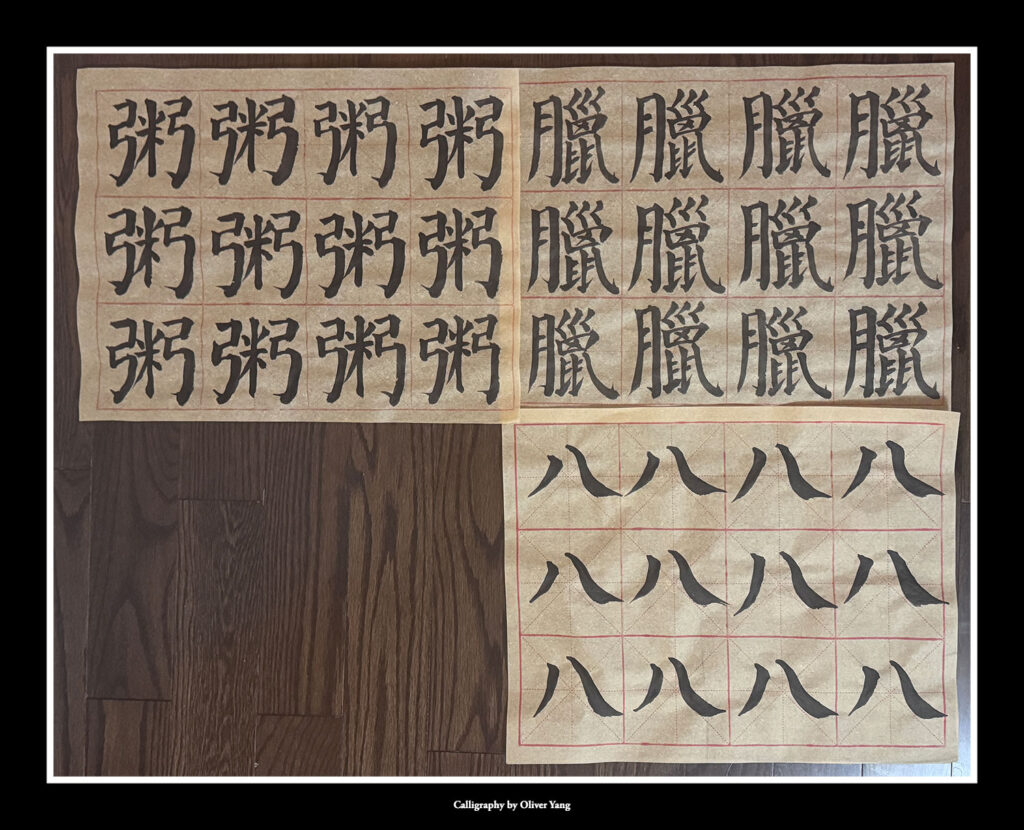 粥粥粥粥
粥粥粥粥
粥粥粥粥
臘臘臘臘
臘臘臘臘
臘臘臘臘
八八八八
八八八八
八八八八
Calligraphy by Oliver Yang